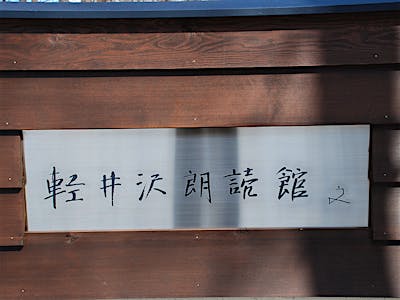 軽井沢朗読館